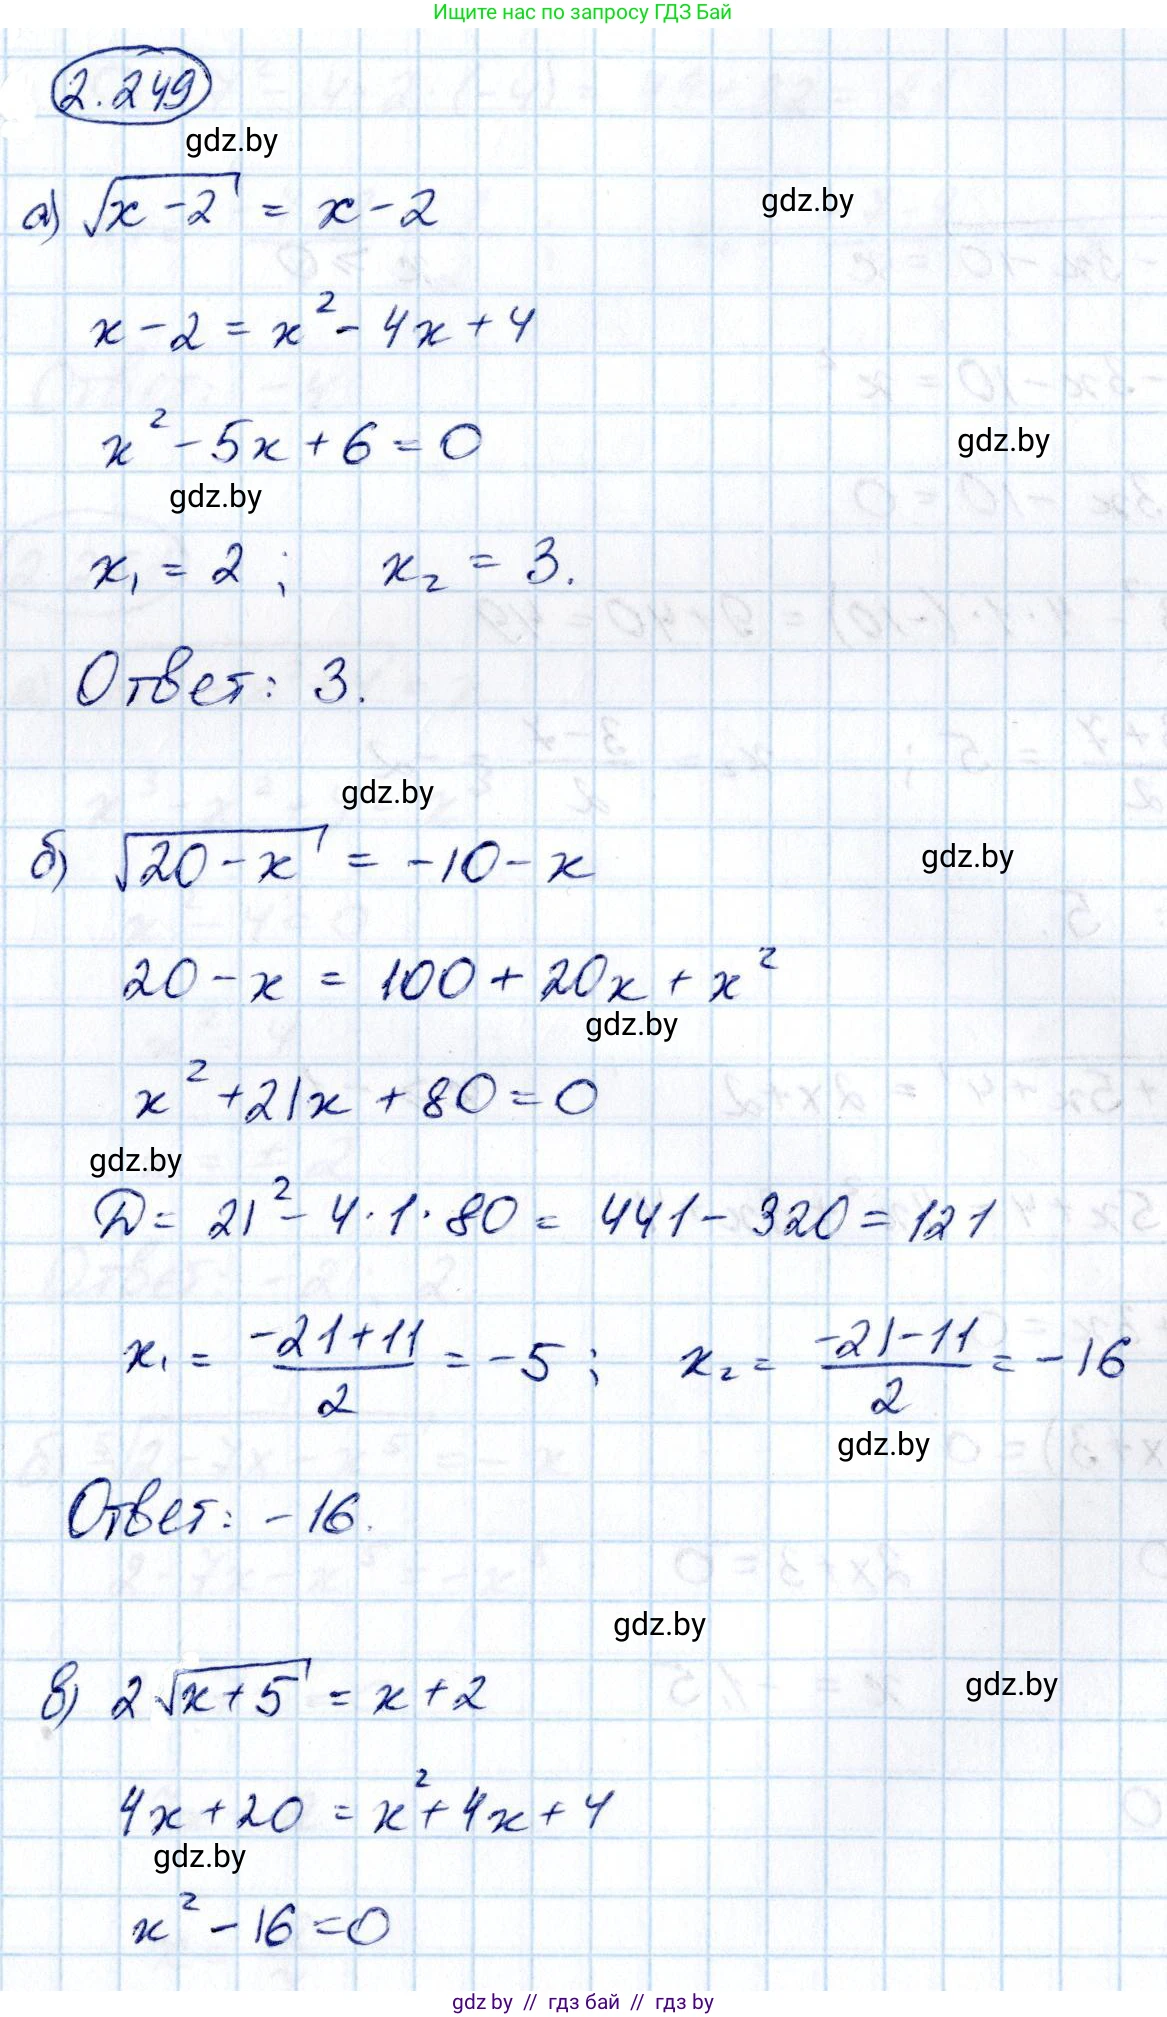 Ищите нас по запросу ГДЗ Бай
2.249
gdz.by
а) √(x-2) = x-2
gdz.by
x-2 = x² - 4x + 4
x² - 5x + 6 = 0
gdz.by
gdz.by
x₁ = 2 ; x₂ = 3.
Ответ: 3.
gdz.by
б) √(20-x) = -10-x
gdz.by
20-x = 100 + 20x + x²
gdz.by
x² + 21x + 80 = 0
gdz.by
D = 21² - 4·1·80 = 441 - 320 = 121
x₁ = (-21+11)/2 = -5 ; x₂ = (-21-11)/2 = -16
gdz.by
Ответ: -16.
gdz.by
в) 2√(x+5) = x+2
gdz.by
4x+20 = x² + 4x + 4
gdz.by
x² - 16 = 0
gdz by // гдз бай // гдз by